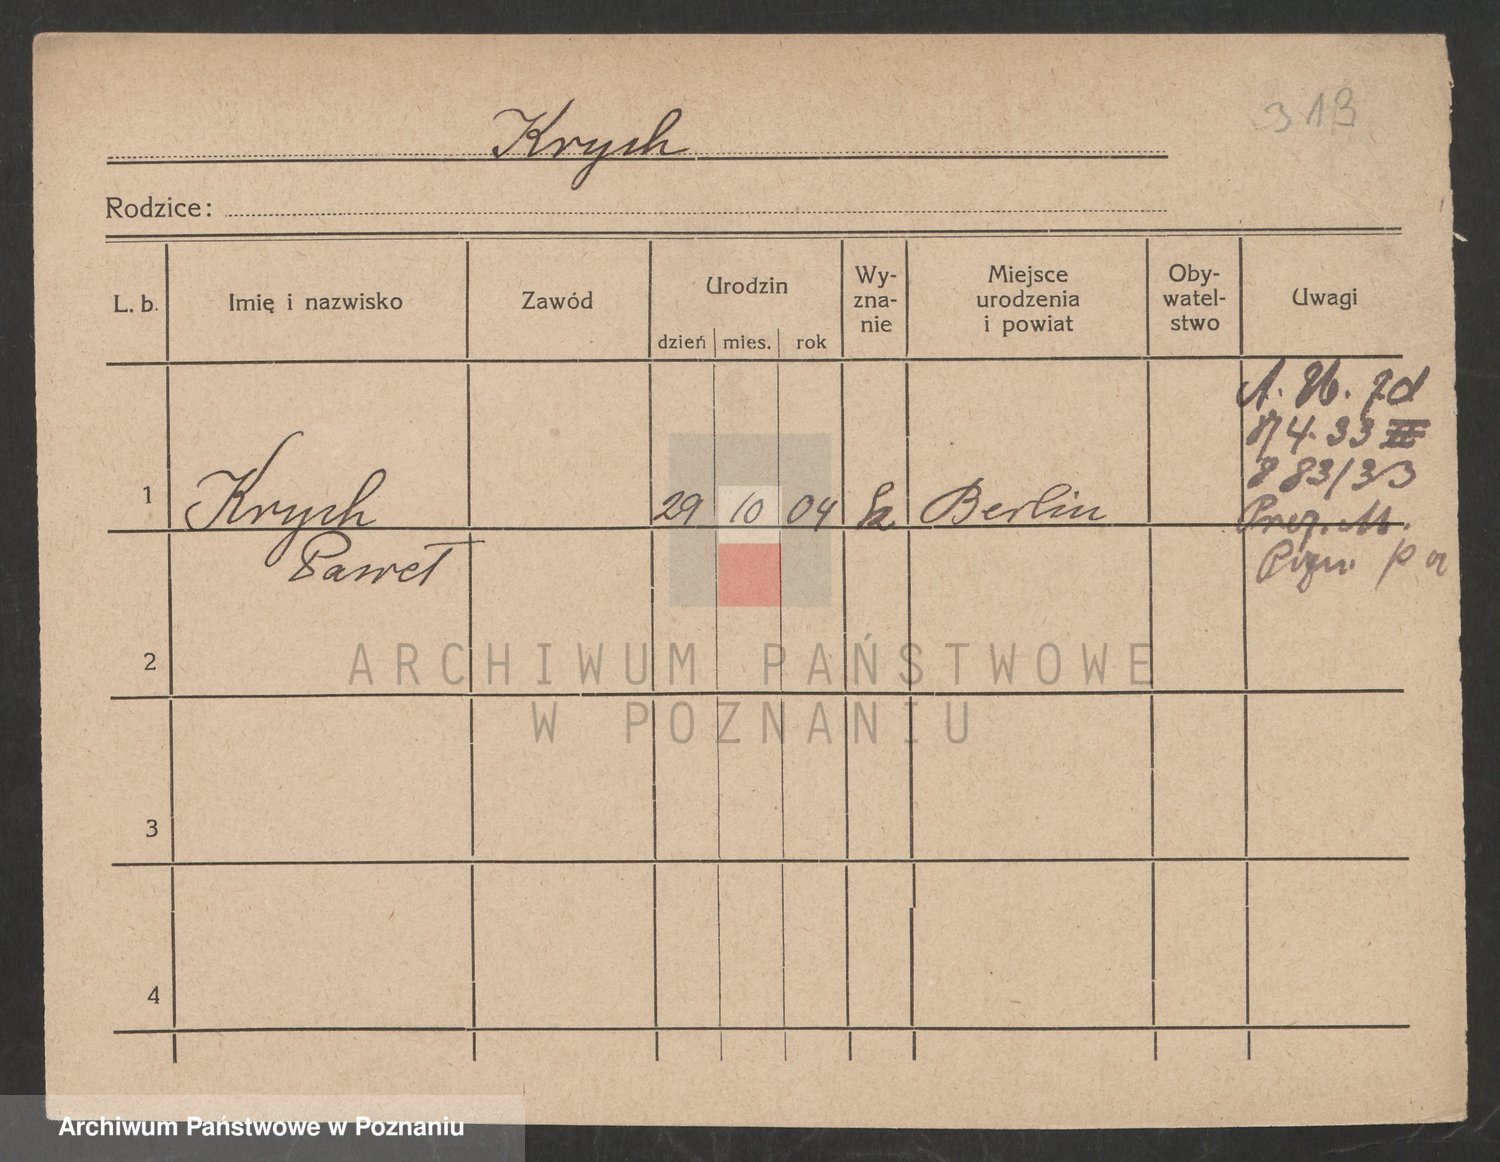 313
Krych
Rodzice:
L. b. Imię i nazwisko Zawód Urodzin dzień mies. rok Wy-zna-nie Miejsce urodzenia i powiat Oby-watel-stwo Uwagi
1 Krych Paweł 29 10 04 k Berlin
4.33 III
883/33
Prez. M.
Pozn.
2
3
4
ARCHIWUM PAŃSTWOWE
W POZNANIU
Archiwum Państwowe w Poznaniu